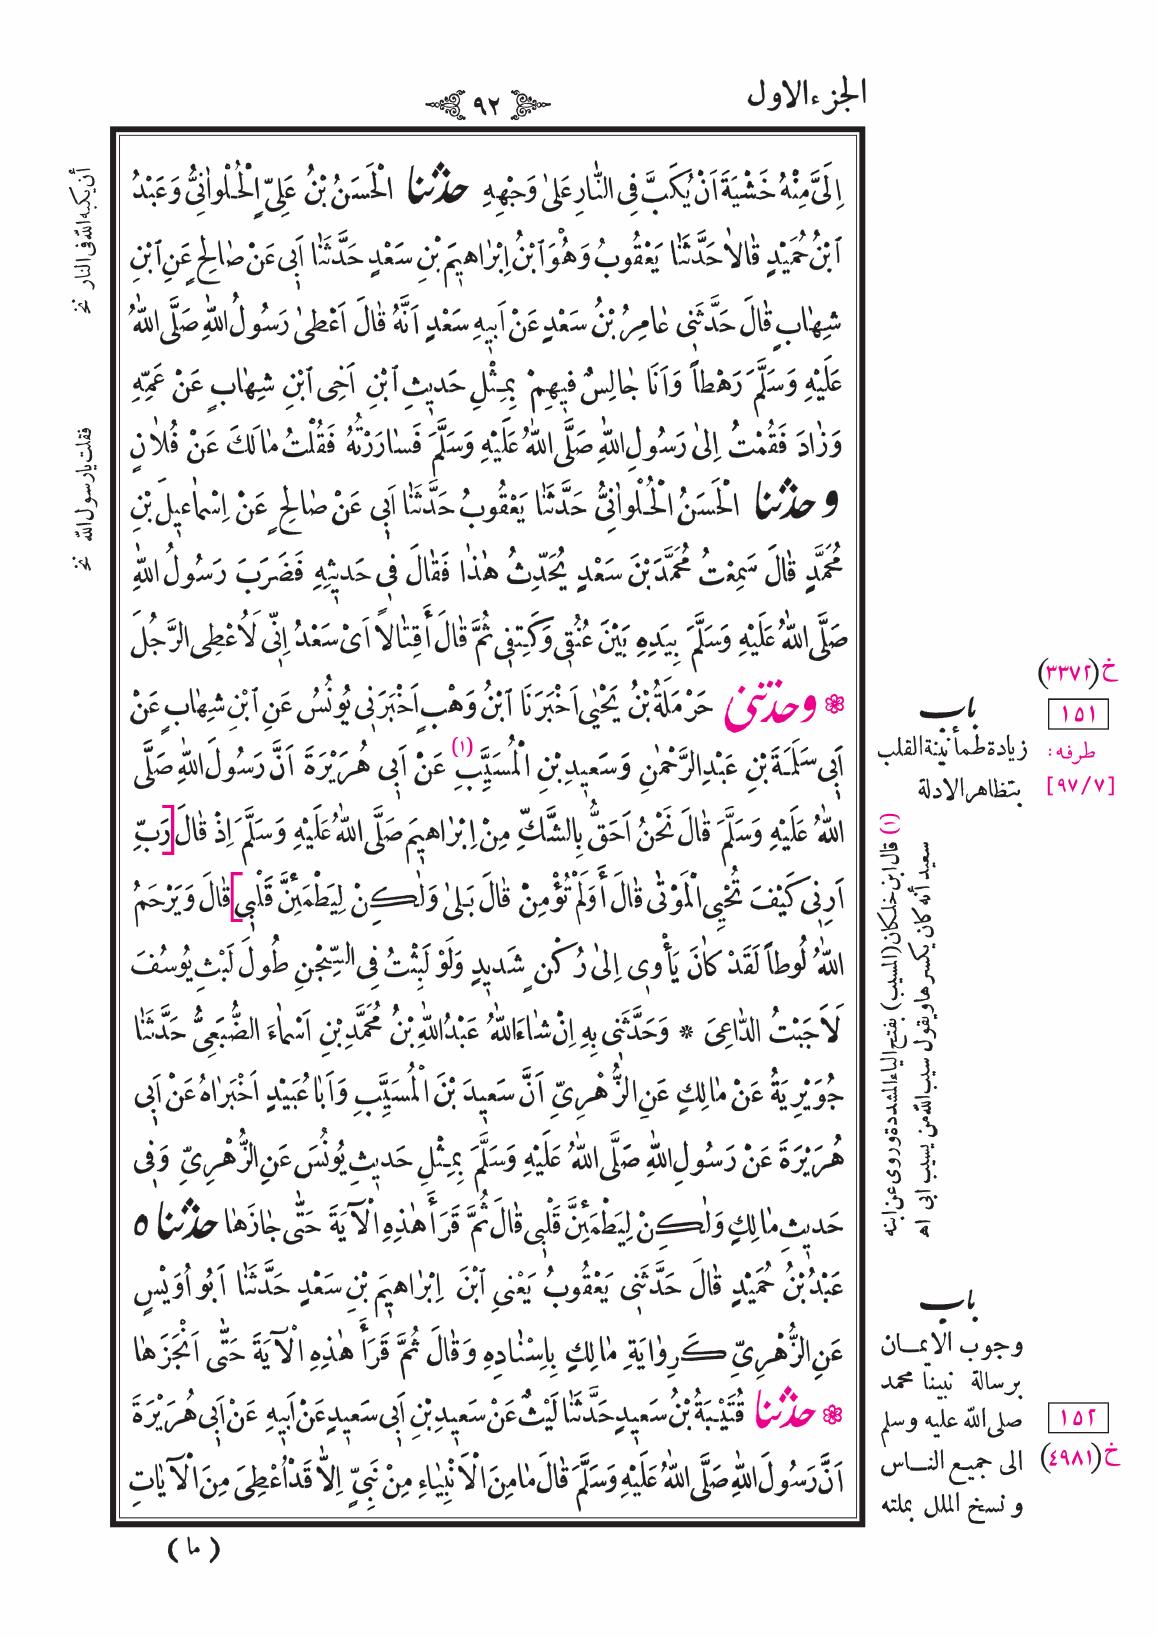 الجزء الاول
٩٢
اِلَىَّ مِنْهُ خَشْيَةَ اَنْ يُكَبَّ فِى النَّارِ عَلىٰ وَجْهِهِ حدثنا الْحَسَنُ بْنُ عَلِىٍّ الْحُلْوٰانِىُّ وَعَبْدُ
ابْنُ حُمَيْدٍ قٰالاٰ حَدَّثَنٰا يَعْقُوبُ وَهُوَ ابْنُ اِبْرٰاهِيمَ بْنِ سَعْدٍ حَدَّثَنٰا اَبِى عَنْ صٰالِحٍ عَنِ ابْنِ
شِهٰابٍ قٰالَ حَدَّثَنِى عٰامِرُ بْنُ سَعْدٍ عَنْ اَبِيهِ سَعْدٍ اَنَّهُ قٰالَ اَعْطىٰ رَسُولُ اللّٰهِ صَلَّى اللّٰهُ
عَلَيْهِ وَسَلَّمَ رَهْطاً وَاَنَا جٰالِسٌ فِيهِمْ بِمِثْلِ حَدِيثِ ابْنِ اَخِى ابْنِ شِهٰابٍ عَنْ عَمِّهِ
وَزٰادَ فَقُمْتُ اِلىٰ رَسُولِ اللّٰهِ صَلَّى اللّٰهُ عَلَيْهِ وَسَلَّمَ فَسٰارَرْتُهُ فَقُلْتُ مٰالَكَ عَنْ فُلاٰنٍ
و حدثنا الْحَسَنُ الْحُلْوٰانِىُّ حَدَّثَنٰا يَعْقُوبُ حَدَّثَنٰا اَبِى عَنْ صٰالِحٍ عَنْ اِسْمٰاعِيلَ بْنِ
مُحَمَّدٍ قٰالَ سَمِعْتُ مُحَمَّدَ بْنَ سَعْدٍ يُحَدِّثُ هٰذٰا فَقٰالَ فِى حَدِيثِهِ فَضَرَبَ رَسُولُ اللّٰهِ
صَلَّى اللّٰهُ عَلَيْهِ وَسَلَّمَ بِيَدِهِ بَيْنَ عُنُقِى وَكَتِفِى ثُمَّ قٰالَ أَقِتٰالاً اَىْ سَعْدُ اِنِّى لَاُعْطِى الرَّجُلَ
وحدثنى حَرْمَلَةُ بْنُ يَحْيٰى اَخْبَرَنَا ابْنُ وَهْبٍ اَخْبَرَنِى يُونُسُ عَنِ ابْنِ شِهٰابٍ عَنْ
اَبِى سَلَمَةَ بْنِ عَبْدِ الرَّحْمٰنِ وَسَعِيدِ بْنِ الْمُسَيَّبِ (١) عَنْ اَبِى هُرَيْرَةَ اَنَّ رَسُولَ اللّٰهِ صَلَّى
اللّٰهُ عَلَيْهِ وَسَلَّمَ قٰالَ نَحْنُ اَحَقُّ بِالشَّكِّ مِنْ اِبْرٰاهِيمَ صَلَّى اللّٰهُ عَلَيْهِ وَسَلَّمَ اِذْ قٰالَ [رَبِّ
اَرِنِى كَيْفَ تُحْيِى الْمَوْتٰى قٰالَ أَوَلَمْ تُؤْمِنْ قٰالَ بَلىٰ وَلٰكِنْ لِيَطْمَئِنَّ قَلْبِى] قٰالَ وَيَرْحَمُ
اللّٰهُ لُوطاً لَقَدْ كٰانَ يَأْوِى اِلىٰ رُكْنٍ شَدِيدٍ وَلَوْ لَبِثْتُ فِى السِّجْنِ طُولَ لَبْثِ يُوسُفَ
لَاَجَبْتُ الدّٰاعِىَ * وَحَدَّثَنِى بِهِ اِنْ شٰاءَ اللّٰهُ عَبْدُ اللّٰهِ بْنُ مُحَمَّدِ بْنِ اَسْمٰاءَ الضُّبَعِىُّ حَدَّثَنٰا
جُوَيْرِيَةُ عَنْ مٰالِكٍ عَنِ الزُّهْرِىِّ اَنَّ سَعِيدَ بْنَ الْمُسَيَّبِ وَاَبٰا عُبَيْدٍ اَخْبَرٰاهُ عَنْ اَبِى
هُرَيْرَةَ عَنْ رَسُولِ اللّٰهِ صَلَّى اللّٰهُ عَلَيْهِ وَسَلَّمَ بِمِثْلِ حَدِيثِ يُونُسَ عَنِ الزُّهْرِىِّ وَفِى
حَدِيثِ مٰالِكٍ وَلٰكِنْ لِيَطْمَئِنَّ قَلْبِى قٰالَ ثُمَّ قَرَأَ هٰذِهِ الْآيَةَ حَتّٰى جٰازَهٰا حدثنا ٥
عَبْدُ بْنُ حُمَيْدٍ قٰالَ حَدَّثَنِى يَعْقُوبُ يَعْنِى ابْنَ اِبْرٰاهِيمَ بْنِ سَعْدٍ حَدَّثَنٰا اَبُو اُوَيْسٍ
عَنِ الزُّهْرِىِّ كَرِوٰايَةِ مٰالِكٍ بِاِسْنٰادِهِ وَقٰالَ ثُمَّ قَرَأَ هٰذِهِ الْآيَةَ حَتّٰى اَنْجَزَهٰا
حدثنا قُتَيْبَةُ بْنُ سَعِيدٍ حَدَّثَنٰا لَيْثٌ عَنْ سَعِيدِ بْنِ اَبِى سَعِيدٍ عَنْ اَبِيهِ عَنْ اَبِى هُرَيْرَةَ
اَنَّ رَسُولَ اللّٰهِ صَلَّى اللّٰهُ عَلَيْهِ وَسَلَّمَ قٰالَ مٰا مِنَ الْاَنْبِيٰاءِ مِنْ نَبِىٍّ اِلاّٰ قَدْ اُعْطِىَ مِنَ الْآيٰاتِ
( ما )
أن يكبه الله فى النار نخ
فقلت يا رسول الله نخ
خ (٣٣٧٢)
١٥١
طرفه:
[٩٧/٧]
باب
زيادة طمأنينة القلب
بتظاهر الادلة
(١) قال ابن خلكان (المسيب) بفتح الياء المشددة وروى عن ابنه
سعيد أنه كان يكسرها ويقول سيب الله من يسيب ابى اه
باب
وجوب الايمان
برسالة نبينا محمد
صلى الله عليه وسلم
الى جميع الناس
و نسخ الملل بملته
١٥٢
خ (٤٩٨١)